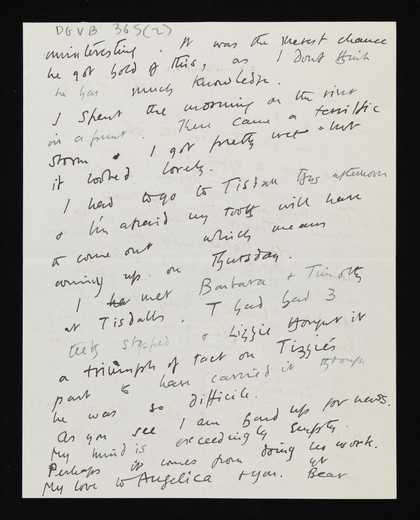 DGVB 365(2)
uninteresting. It was the merest chance
he got hold of this, as I dont think
he has much knowledge.
I spent the morning on the river
in a punt. There came a terrific
storm. I got pretty wet but
it looked lovely.
I had to go to Tisdall this afternoon
& I'm afraid my tooth will have
to come out which means
coming up on Thursday.
I met Barbara & Timothy
at Tisdalls. T had had 3
teeth stopped & Lizzie thought it
a triumph of tact on Tizzie's
part to have carried it through
he was so difficile.
As you see I am hard up for news.
My mind is exceedingly empty.
Perhaps it comes from doing no work.
My love to Angelica & you. Bear